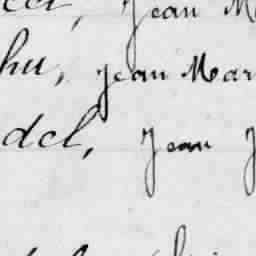 Jean M
hu, Jean Mar
del, Jean J